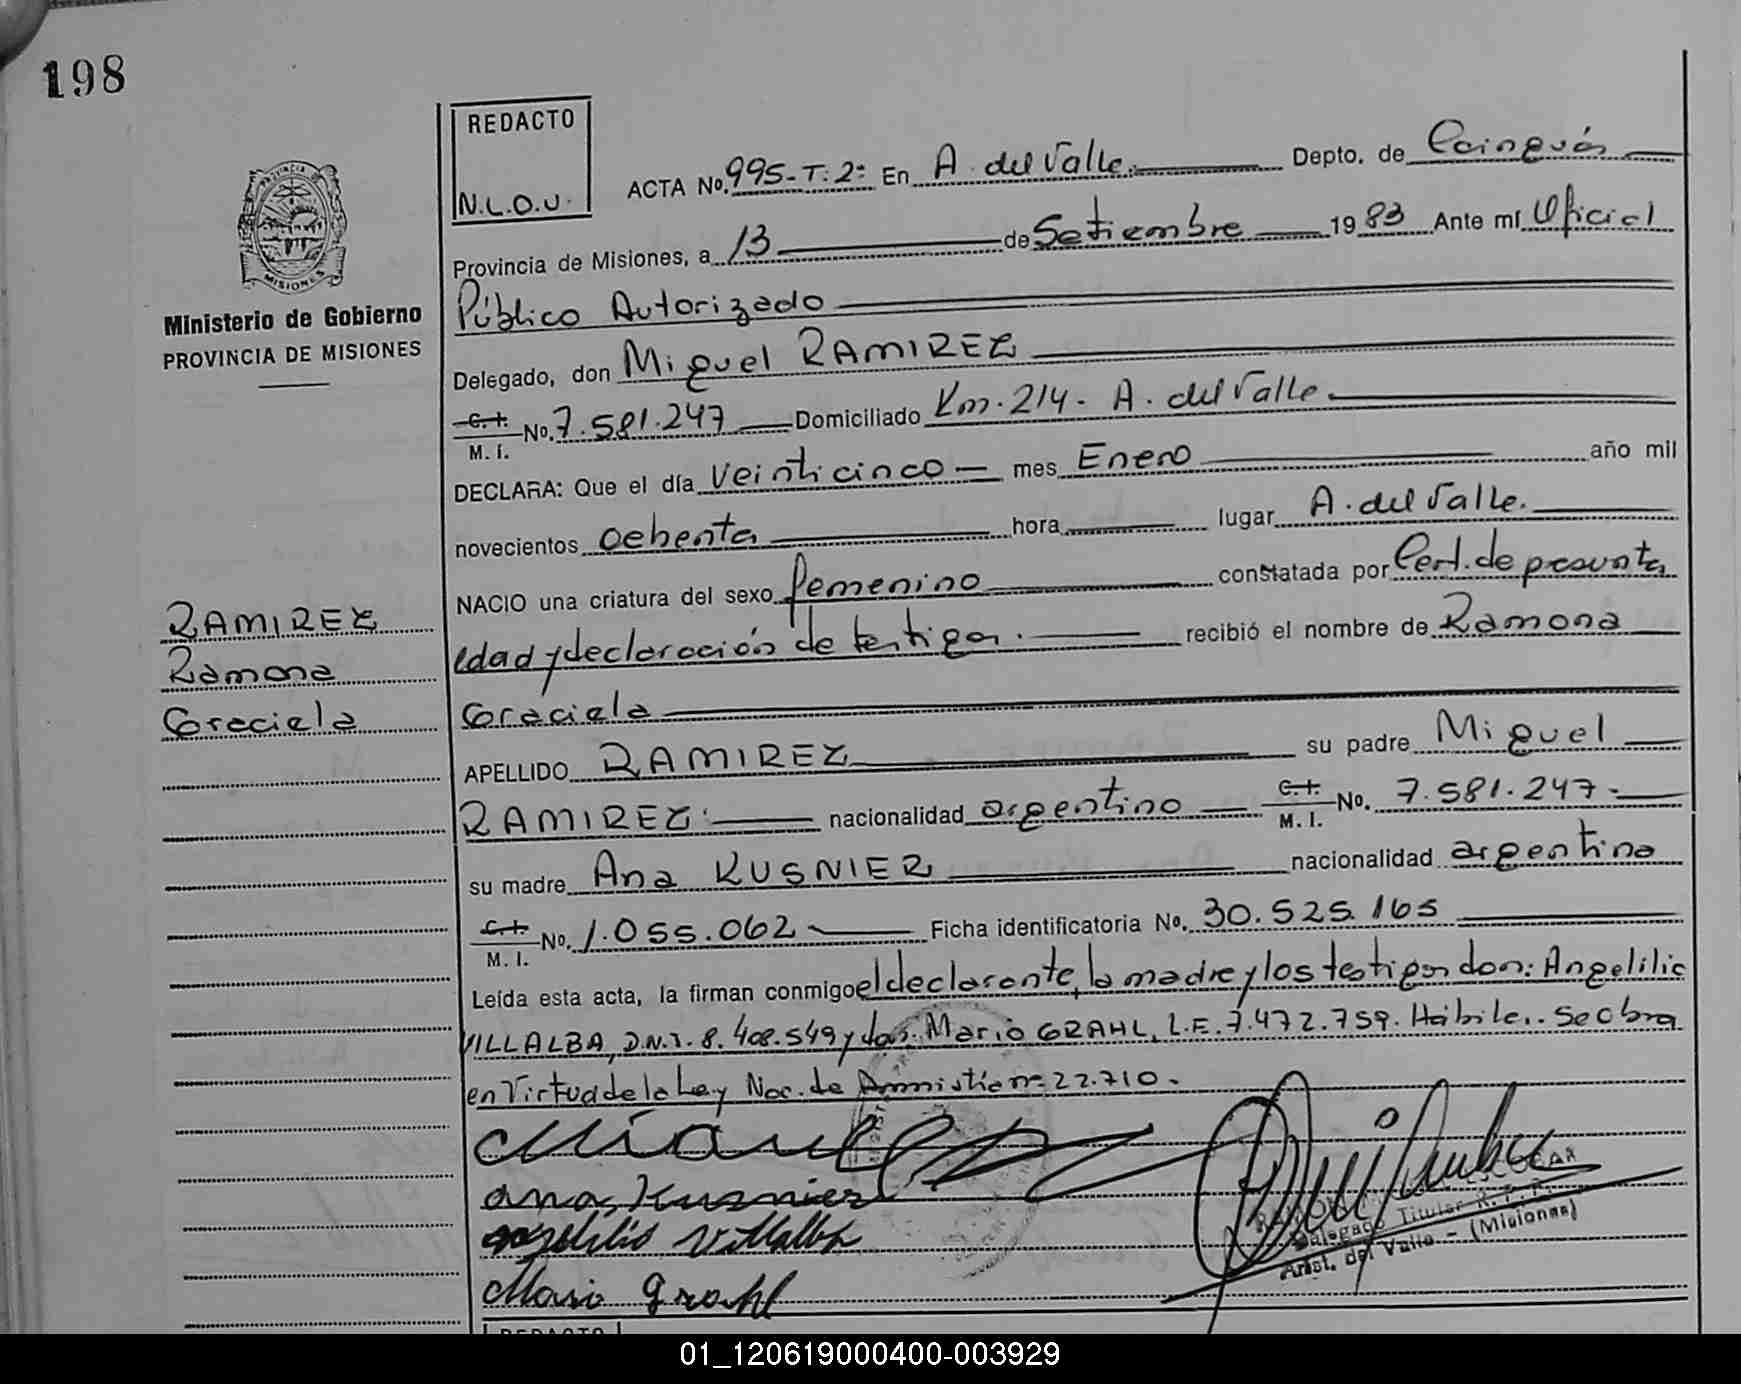 198
REDACTO
N.L.O.U.
PROVINCIA DE
MISIONES
Ministerio de Gobierno
PROVINCIA DE MISIONES
RAMIREZ
Ramona
Graciela
ACTA No. 995-T:2º En A. del Valle. Depto. de Cainguás
Provincia de Misiones, a 13 de Setiembre 1983 Ante mí Oficial
Público Autorizado
Delegado, don Miguel RAMIREZ
C.I. M. I. No. 7.581.247 Domiciliado Km. 214- A. del Valle.
DECLARA: Que el día veinticinco mes Enero año mil
novecientos ochenta hora lugar A. del Valle.
NACIO una criatura del sexo femenino constatada por Cert. de presunta
edad y declaración de testigos. recibió el nombre de Ramona
Graciela
APELLIDO RAMIREZ su padre Miguel
RAMIREZ. nacionalidad argentino C.I. M. I. No. 7.581.247.
su madre Ana KUSNIER nacionalidad argentina
C.I. M. I. No. 1.055.062 Ficha identificatoria No. 30.525.165
Leída esta acta, la firman conmigo el declarante, la madre y los testigos don: Angelilio
VILLALBA, D.N.I. 8.408.549 y don: Mario GRAHL, L.E. 7.472.759. Hábiles. Se obra
en Virtud de la Ley Nac. de Amnistía nº 22.710.
ana Kusnier
angelilio Villalba
Mario Grahl
Delegado Titular R.P.P.
Arist. del Valle - (Misiones)
REDACTO
01_120619000400-003929